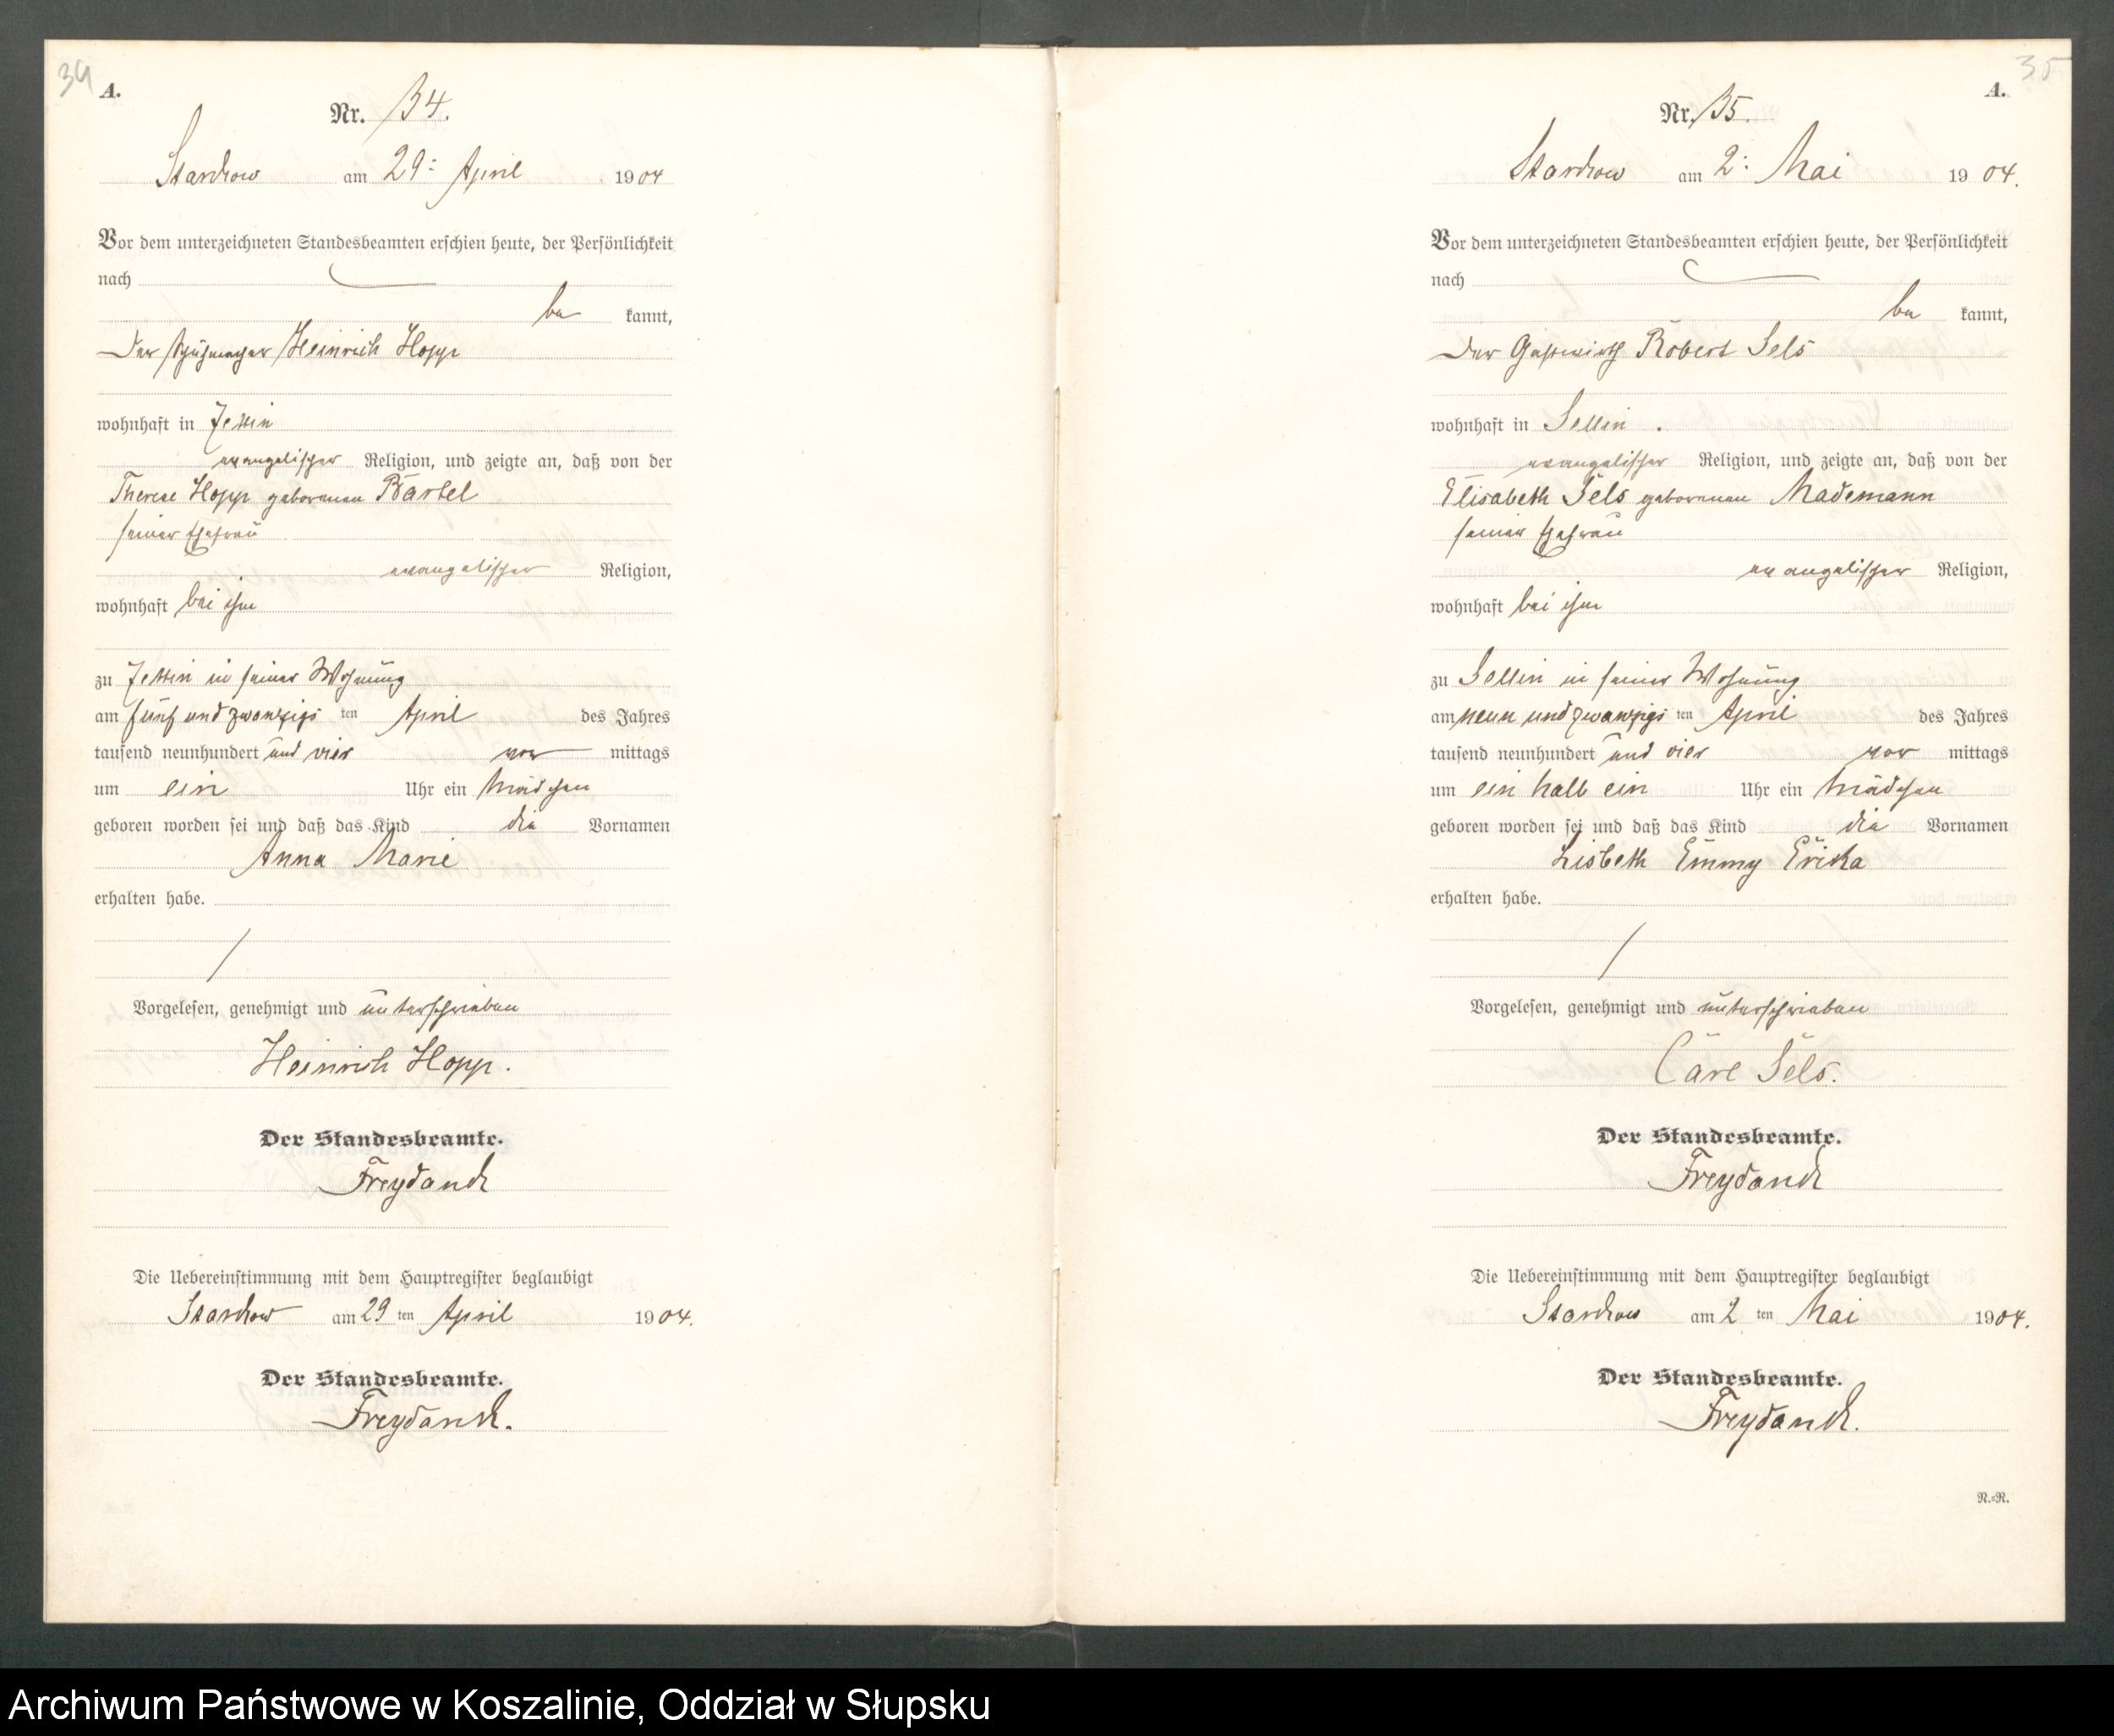 34
A.
Nr. 34.
Starckow am 29: April 1904
Vor dem unterzeichneten Standesbeamten erschien heute, der Persönlichkeit
nach
be kannt,
Der Schuhmacher Heinrich Hopp
wohnhaft in Zettin
evangelischer Religion, und zeigte an, daß von der
Therese Hopp geborenen Bartel
seiner Ehefrau
evangelischer Religion,
wohnhaft bei ihm
zu Zettin in seiner Wohnung
am fünf und zwanzigs ten April des Jahres
tausend neunhundert und vier vor mittags
um ein Uhr ein Mädchen
geboren worden sei und daß das Kind die Vornamen
Anna Marie
erhalten habe.
Vorgelesen, genehmigt und unterschrieben
Heinrich Hopp.
Der Standesbeamte.
Freydanck
Die Uebereinstimmung mit dem Hauptregister beglaubigt
Starckow am 29 ten April 1904.
Der Standesbeamte.
Freydanck.
35
A.
Nr. 35.
Starckow am 2: Mai 1904.
Vor dem unterzeichneten Standesbeamten erschien heute, der Persönlichkeit
nach
be kannt,
Der Gastwirth Robert Sels
wohnhaft in Sellin.
evangelischer Religion, und zeigte an, daß von der
Elisabeth Sels geborenen Mademann
seiner Ehefrau
evangelischer Religion,
wohnhaft bei ihm
zu Sellin in seiner Wohnung
am neun und zwanzigs ten April des Jahres
tausend neunhundert und vier vor mittags
um ein halb ein Uhr ein Mädchen
geboren worden sei und daß das Kind die Vornamen
Lisbeth Emmy Ericka
erhalten habe.
Vorgelesen, genehmigt und unterschrieben
Carl Sels.
Der Standesbeamte.
Freydanck
Die Uebereinstimmung mit dem Hauptregister beglaubigt
Starckow am 2 ten Mai 1904.
Der Standesbeamte.
Freydanck.
N.-R.
Archiwum Państwowe w Koszalinie, Oddział w Słupsku